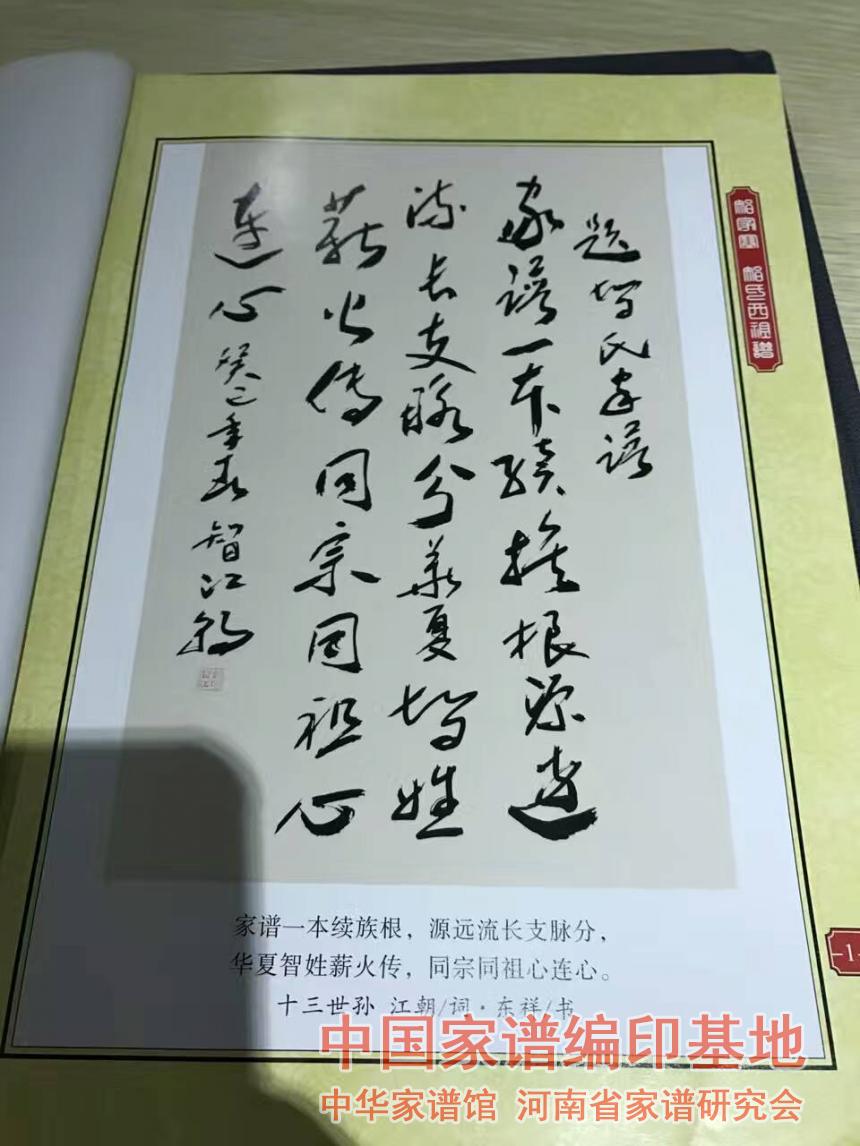 題智氏家譜
家譜一本續族根源遠
流长支脉分華夏智姓
薪火傳同宗同祖心
連心 癸巳年春 智江朝
智氏西祖譜
-1-
家谱一本续族根，源远流长支脉分，
华夏智姓薪火传，同宗同祖心连心。
十三世孙 江朝/词·东祥/书
中国家谱编印基地
中华家谱馆 河南省家谱研究会